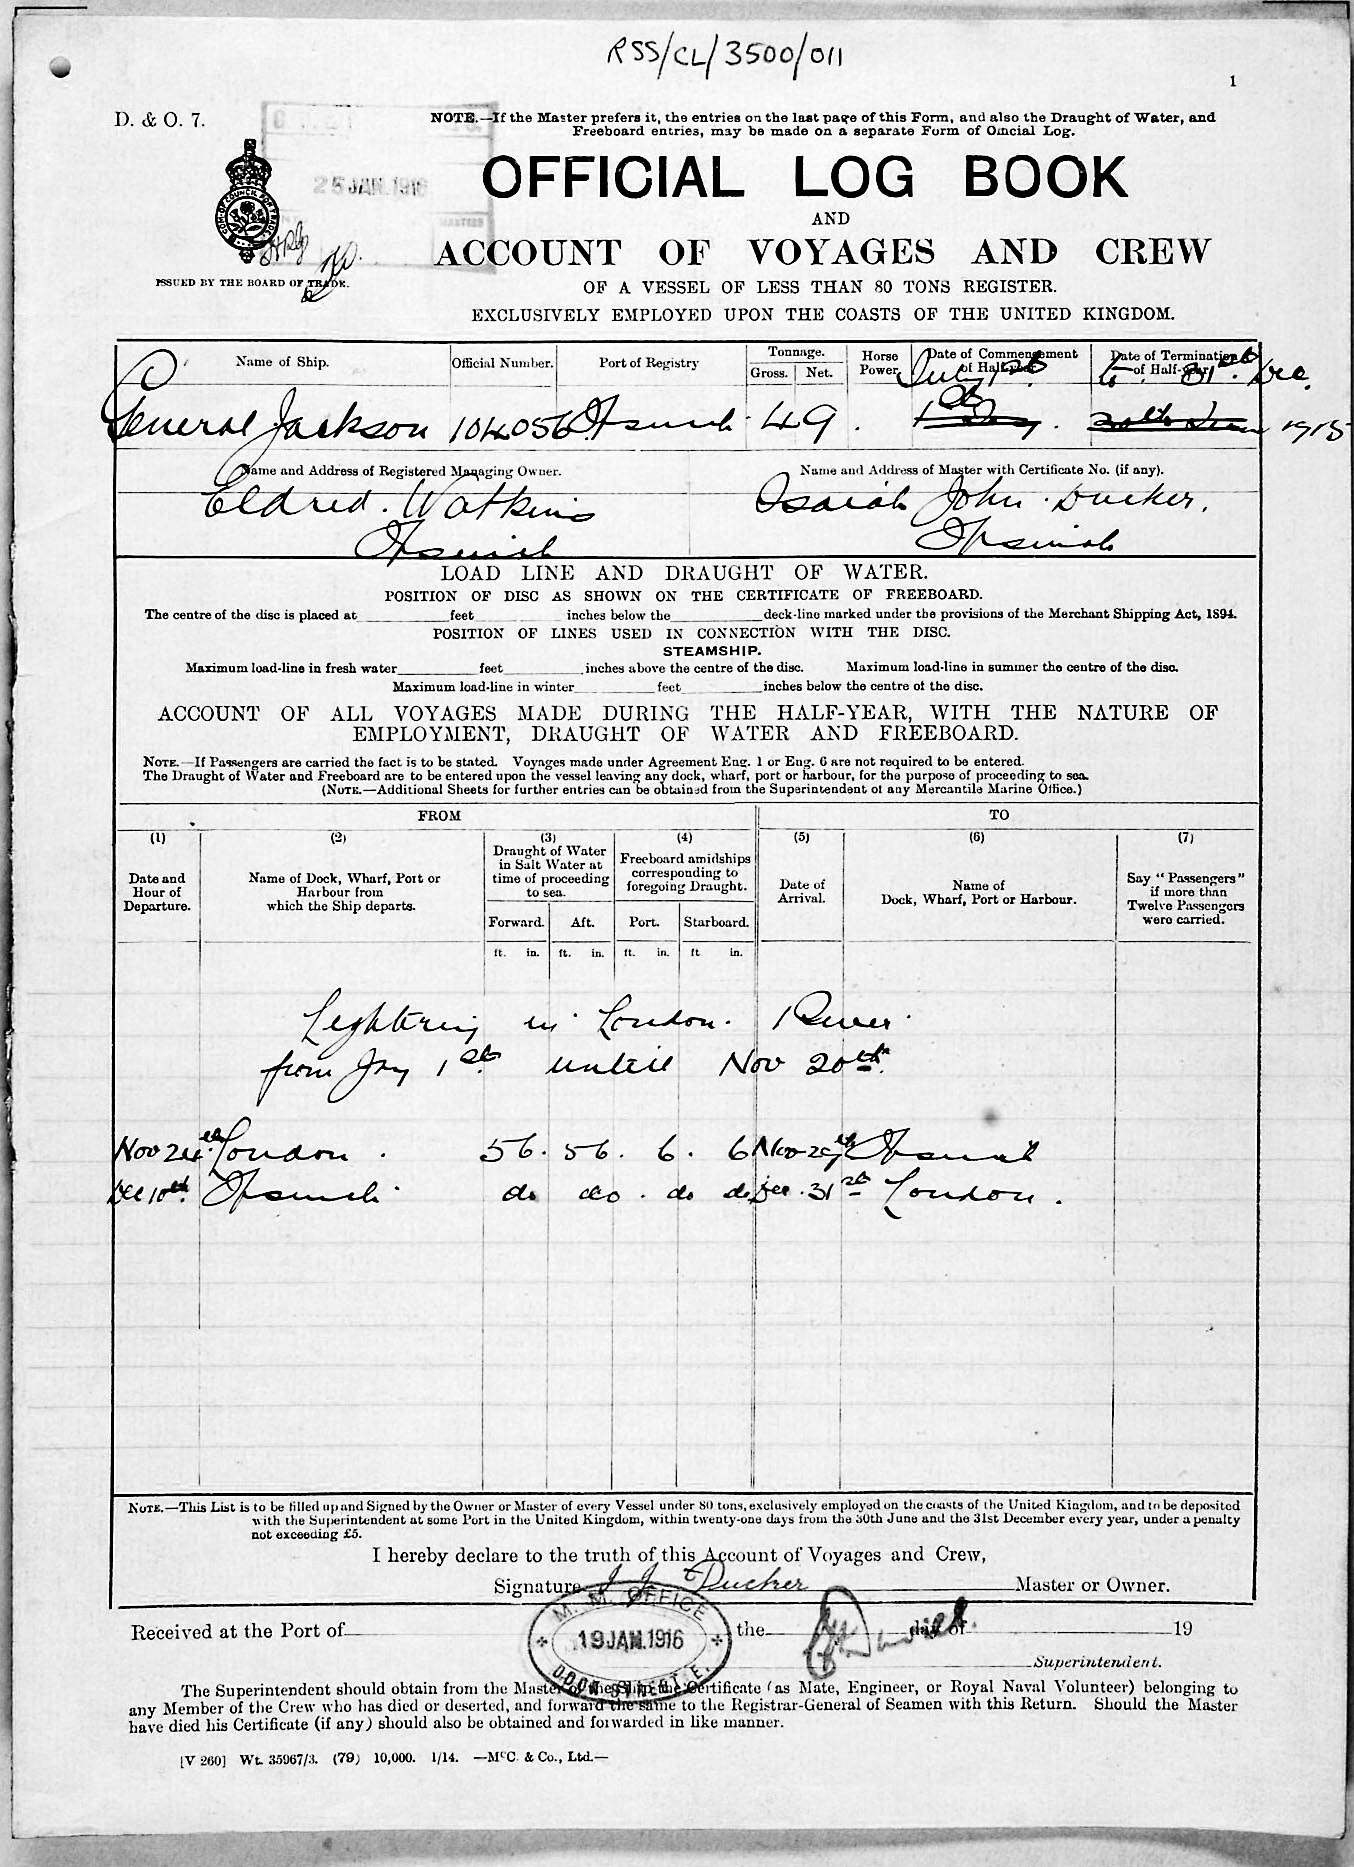 RSS/CL/3500/011
1
D. & O. 7.
NOTE.—If the Master prefers it, the entries on the last page of this Form, and also the Draught of Water, and
Freeboard entries, may be made on a separate Form of Official Log.
25 JAN. 1916
OFFICIAL LOG BOOK
AND
ACCOUNT OF VOYAGES AND CREW
ISSUED BY THE BOARD OF TRADE.
OF A VESSEL OF LESS THAN 80 TONS REGISTER.
EXCLUSIVELY EMPLOYED UPON THE COASTS OF THE UNITED KINGDOM.
Name of Ship. Official Number. Port of Registry Tonnage. Gross. Net. Horse Power. Date of Commencement of Half-year Date of Termination of Half-year
July 1st to 31st Dec.
General Jackson 104056 Ipswich 49 1915
Name and Address of Registered Managing Owner. Name and Address of Master with Certificate No. (if any).
Eldred Watkins Isaiah John Ducker.
Ipswich Ipswich
LOAD LINE AND DRAUGHT OF WATER.
POSITION OF DISC AS SHOWN ON THE CERTIFICATE OF FREEBOARD.
The centre of the disc is placed at feet inches below the deck-line marked under the provisions of the Merchant Shipping Act, 1894.
POSITION OF LINES USED IN CONNECTION WITH THE DISC.
STEAMSHIP.
Maximum load-line in fresh water feet inches above the centre of the disc. Maximum load-line in summer the centre of the disc.
Maximum load-line in winter feet inches below the centre of the disc.
ACCOUNT OF ALL VOYAGES MADE DURING THE HALF-YEAR, WITH THE NATURE OF
EMPLOYMENT, DRAUGHT OF WATER AND FREEBOARD.
NOTE.—If Passengers are carried the fact is to be stated. Voyages made under Agreement Eng. 1 or Eng. 6 are not required to be entered.
The Draught of Water and Freeboard are to be entered upon the vessel leaving any dock, wharf, port or harbour, for the purpose of proceeding to sea.
(NOTE.—Additional Sheets for further entries can be obtained from the Superintendent of any Mercantile Marine Office.)
FROM TO
(1) (2) (3) (4) (5) (6) (7)
Date and Hour of Departure. Name of Dock, Wharf, Port or Harbour from which the Ship departs. Draught of Water in Salt Water at time of proceeding to sea. Freeboard amidships corresponding to foregoing Draught. Date of Arrival. Name of Dock, Wharf, Port or Harbour. Say "Passengers" if more than Twelve Passengers were carried.
Forward. Aft. Port. Starboard.
ft. in. ft. in. ft. in. ft. in.
Lightering in London River
from Jny 1st untill Nov 20th
London 56. 56. 6. 6 Ipswich
Dec 10th Ipswich do do do do Dec. 31st London.
NOTE.—This List is to be filled up and Signed by the Owner or Master of every Vessel under 80 tons, exclusively employed on the coasts of the United Kingdom, and to be deposited
with the Superintendent at some Port in the United Kingdom, within twenty-one days from the 30th June and the 31st December every year, under a penalty
not exceeding £5.
I hereby declare to the truth of this Account of Voyages and Crew,
Signature I J Ducker Master or Owner.
M. M. OFFICE
19 JAN. 1916
DOCK STREET E.
Received at the Port of the day of 19
Superintendent.
The Superintendent should obtain from the Master of the Ship the Certificate (as Mate, Engineer, or Royal Naval Volunteer) belonging to
any Member of the Crew who has died or deserted, and forward the same to the Registrar-General of Seamen with this Return. Should the Master
have died his Certificate (if any) should also be obtained and forwarded in like manner.
[V 260] Wt. 35967/3. (79) 10,000. 1/14. —McC. & Co., Ltd.—